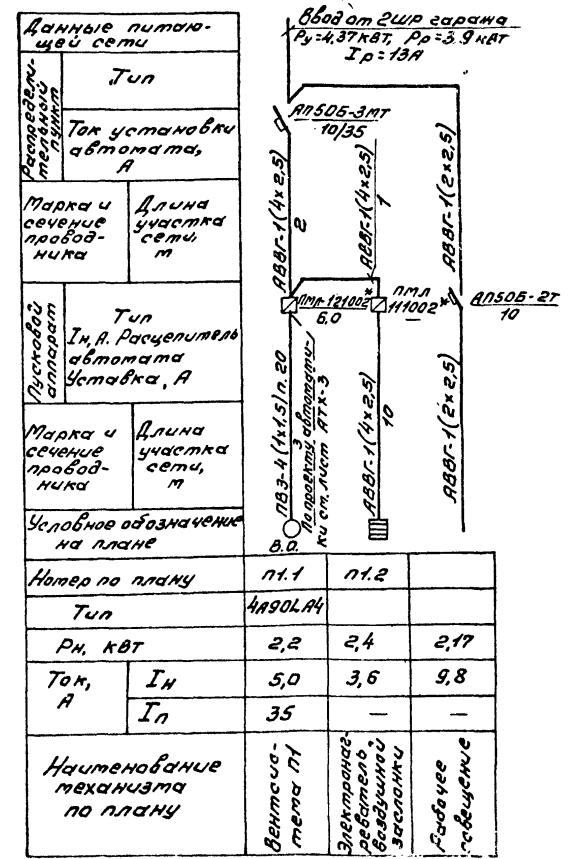 Данные питаю-
щей сети
Распредели-
тельный
пункт
Тип
Ток установки
автомата,
А
Марка и
сечение
провод-
ника
Длина
участка
сети,
м
Пусковой
аппарат
Тип
Iн, А. Расцепитель
автомата
Уставка, А
Марка и
сечение
провод-
ника
Длина
участка
сети,
м
Условное обозначение
на плане
Ввод от 2ШР гаража
Ру=4,37кВт, Рр=3.9 кВт
Iр=13А
АП50Б-3МТ
10/35
АВВГ-1(4х2,5)
2
АВВГ-1(4х2,5)
1
АВВГ-1(2х2,5)
ПМЛ-121002*
6,0
ПМЛ
111002*
—
АП50Б-2Т
10
ПВ3-4(1х1,5)п.20
3
По проекту автомати-
ки см. лист АТХ-3
АВВГ-1(4х2,5)
10
АВВГ-1(2х2,5)
В.О.
Номер по плану П1.1 П1.2
Тип 4А90LA4
Рн, кВт 2,2 2,4 2,17
Ток,
А
Iн 5,0 3,6 9,8
Iп 35 — —
Наименование
механизма
по плану
Вентсис-
тема П1
Электронаг-
реватель
воздушной
заслонки
Рабочее
освещение